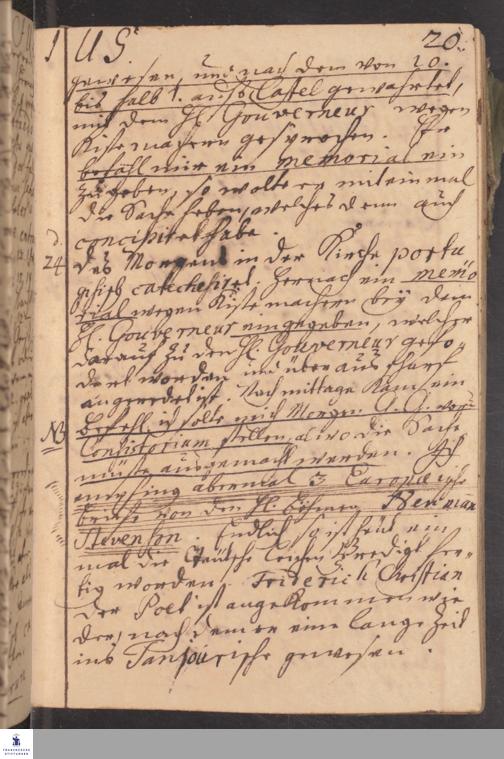 1 US. 20.
gewesen, und nach dem von 20.
bis halb 1. aufs Castel gewartet,
mit dem H. Gouverneur wegen
Kistemachern gesprochen. Er
befahl mir ein memorial ein
zugeben, so wolte er mit einmal
die Sache heben, welches denn auch
concipiret habe.
d.
24. des Morgens in der Kirche portu
gisisch catechesiret. Hernach ein memo
rial wegen Kistemachern bey dem
H. Gouverneur eingegeben, welcher
darauf zu den H. Gouverneur gefo-
dert worden und überaus scharf
angeredet ist. Nachmittags kam ein
Befehl, ich solte mich Morgen vorm
NB Consistorium stellen, alwo die Sache
müste ausgemacht werden. Ich
empfing abermal 3 Europäische
briefe von den H. Böhmen,
Stevenson. Endlich ist heut ein
mal die Teutsche Predigt fer-
tig worden. Friderich Christian
der Poet ist angekommen wie
der, nach dem er eine lange Zeit
ins Tanjourische gewesen.
FRANCKESCHE
STIFTUNGEN